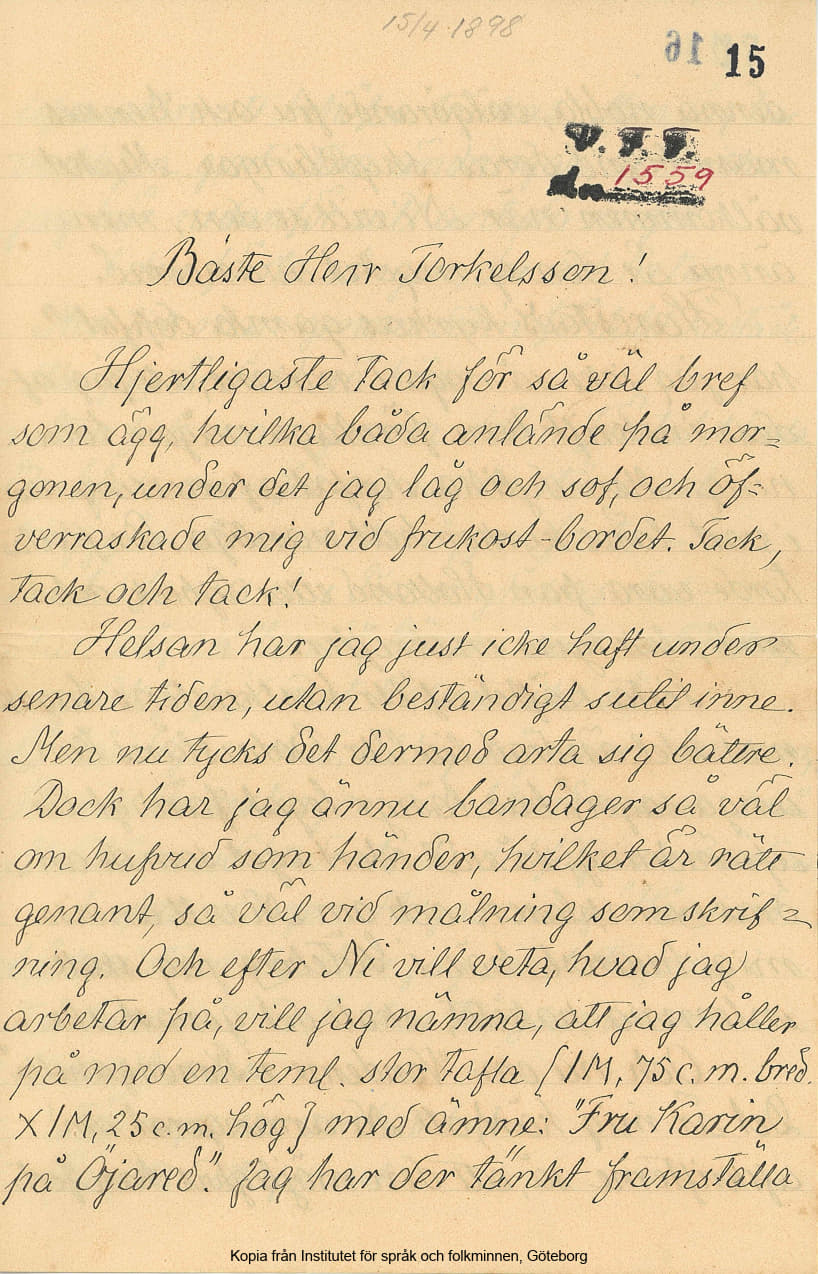 15/4 1898
16 15
V. F. F.
dnr 1559
Bäste Herr Torkelsson!
Hjertligaste tack för så väl bref
som ägg, hvilka båda anlände på mor=
gonen, under det jag låg och sof, och öf=
verraskade mig vid frukost-bordet. Tack,
tack och tack!
Helsan har jag just icke haft under
senare tiden, utan beständigt sutit inne.
Men nu tycks det dermed arta sig bättre.
Dock har jag ännu bandager så väl
om hufvud som händer, hvilket är rätt
genant, så väl vid målning som skrif=
ning. Och efter Ni vill veta, hvad jag
arbetar på, vill jag nämna, att jag håller
på med en teml. stor tafla [1 M, 75 c. m. bred.
X 1 M, 25 c. m. hög] med ämne: "Fru Karin
på Öjared". Jag har der tänkt framställa
Kopia från Institutet för språk och folkminnen, Göteborg